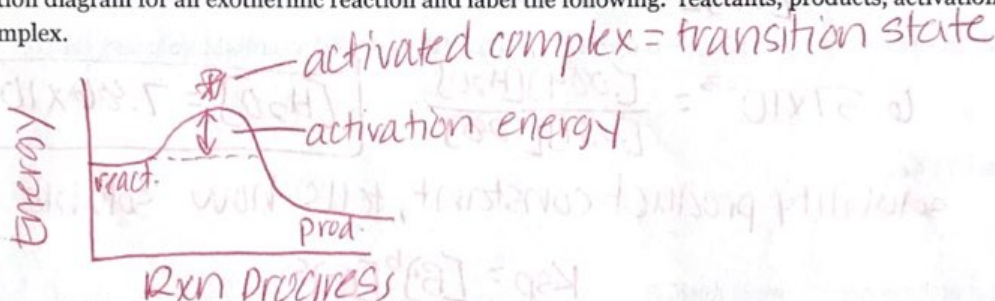 tion diagram for an exothermic reaction and label the following: reactants, products, activation
mplex.
activated complex = transition state
activation energy
Energy
react.
prod.
Rxn progress